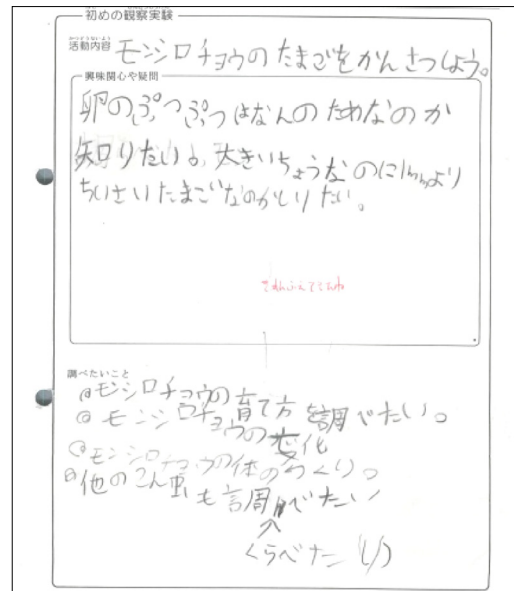 初めの観察実験
活動内容 モンシロチョウのたまごをかんさつしよう。
興味関心や疑問
卵のぷつぷつはなんのためなのか
知りたい。大きいちょうなのに1mmより
ちいさいたまごなのかしりたい。
調べたいこと
@モンシロチョウの育て方を調べたい。
@モンシロチョウの変化
@モンシロチョウの体のつくり。
@他のこん虫も調べたい
くらべたい